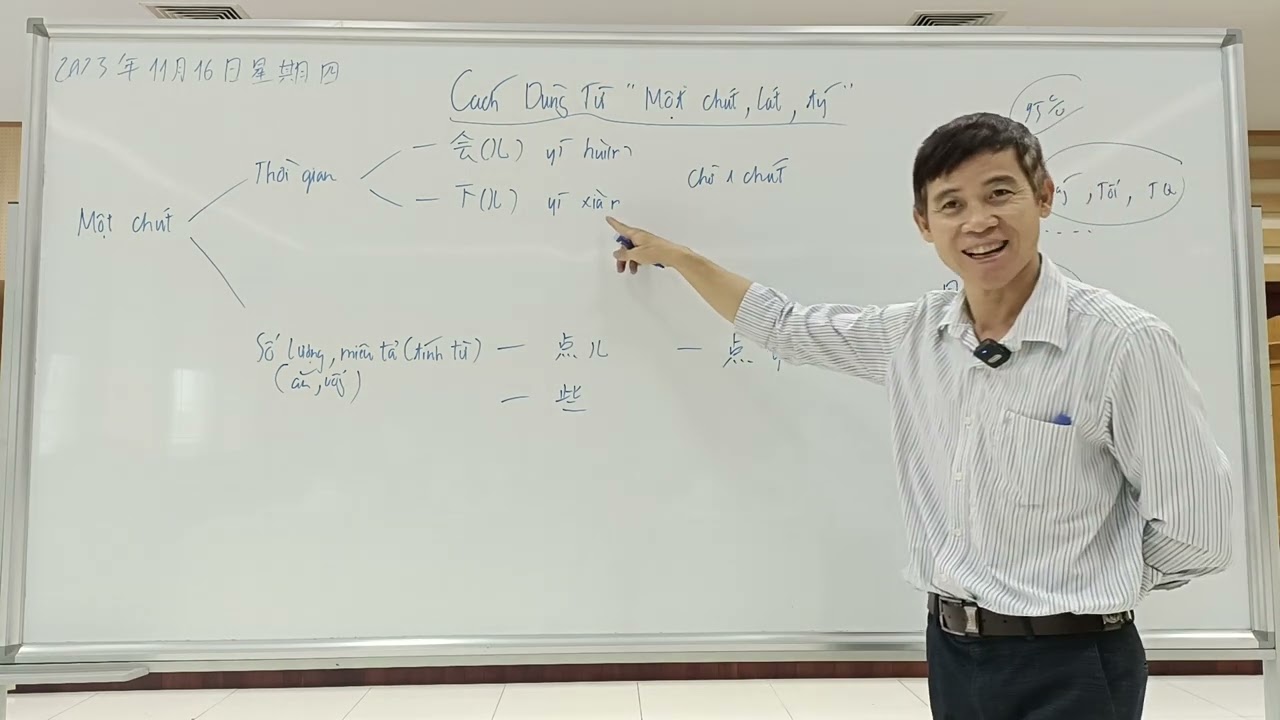 2023年11月16日星期四
Cách Dùng Từ "Một chút, lát, tý"
一 会(儿) yī huìr
Thời gian
chỉ 1 chút
一 下(儿) yī xiàr
, Tối, TQ
Một chút
Số lượng, miêu tả (tính từ) 一 点儿 一 点
(ăn, uống)
一 些